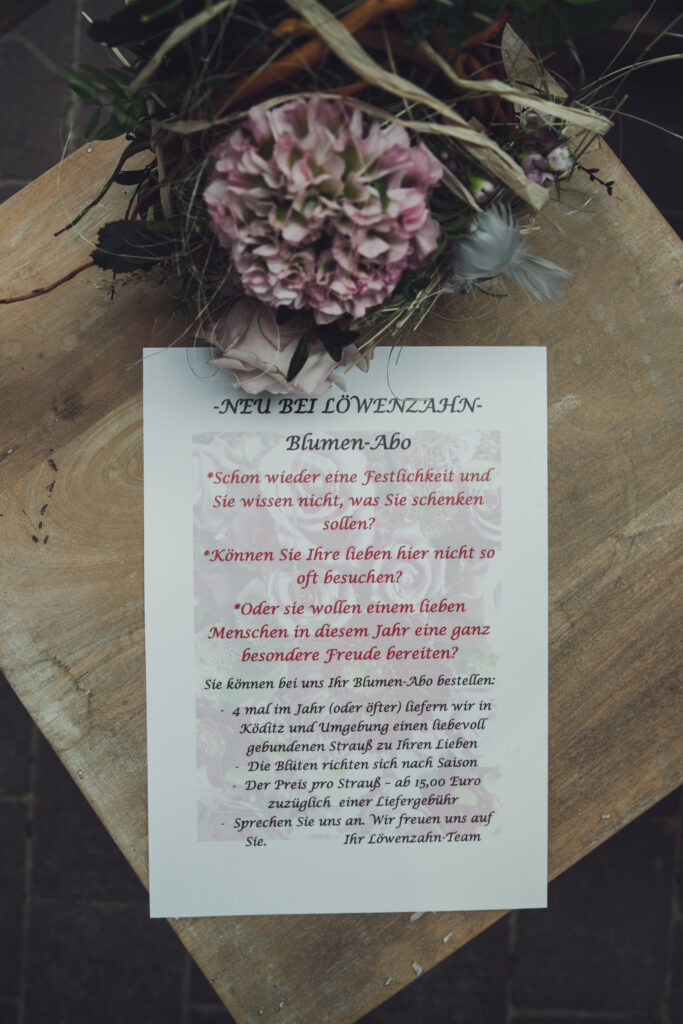 -NEU BEI LÖWENZAHN-
Blumen-Abo
*Schon wieder eine Festlichkeit und
Sie wissen nicht, was Sie schenken
sollen?
*Können Sie Ihre lieben hier nicht so
oft besuchen?
*Oder sie wollen einem lieben
Menschen in diesem Jahr eine ganz
besondere Freude bereiten?
Sie können bei uns Ihr Blumen-Abo bestellen:
- 4 mal im Jahr (oder öfter) liefern wir in
Köditz und Umgebung einen liebevoll
gebundenen Strauß zu Ihren Lieben
- Die Blüten richten sich nach Saison
- Der Preis pro Strauß – ab 15,00 Euro
zuzüglich einer Liefergebühr
- Sprechen Sie uns an. Wir freuen uns auf
Sie. Ihr Löwenzahn-Team